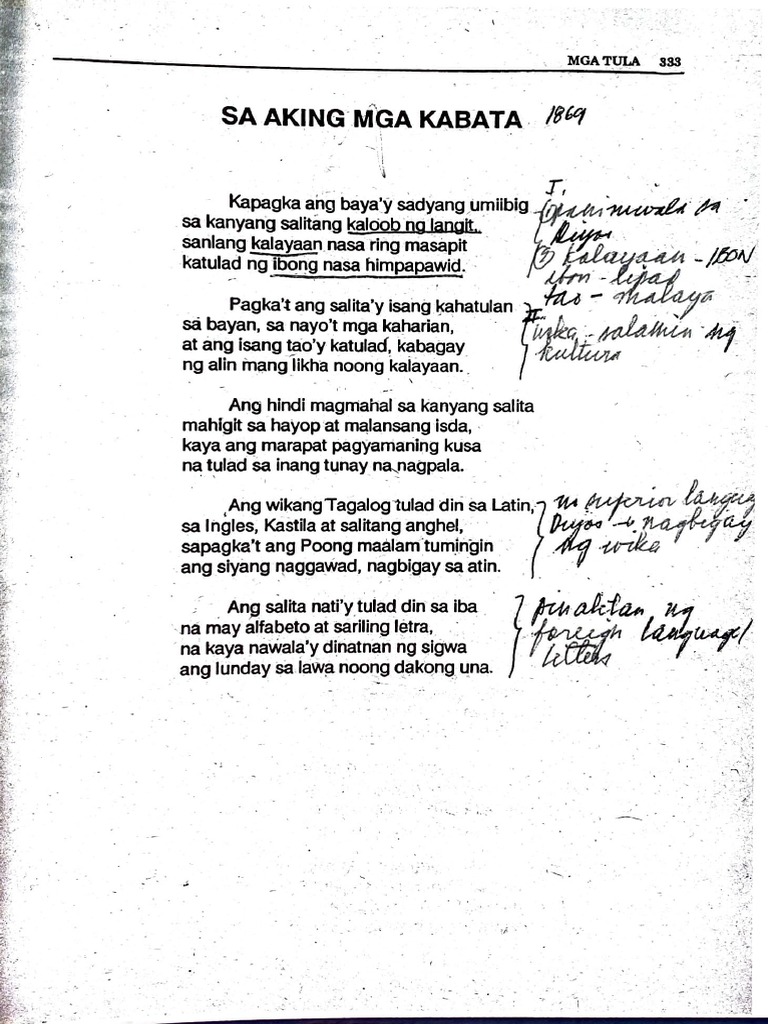 MGA TULA 333
SA AKING MGA KABATA 1869
Kapagka ang baya'y sadyang umiibig
sa kanyang salitang kaloob ng langit,
sanlang kalayaan nasa ring masapit
katulad ng ibong nasa himpapawid.
I.
① paniniwala sa
Diyos
② kalayaan - IBON
ibon - lipad
tao - malaya
Pagka't ang salita'y isang kahatulan
sa bayan, sa nayo't mga kaharian,
at ang isang tao'y katulad, kabagay
ng alin mang likha noong kalayaan.
II.
wika - salamin ng
kultura
Ang hindi magmahal sa kanyang salita
mahigit sa hayop at malansang isda,
kaya ang marapat pagyamaning kusa
na tulad sa inang tunay na nagpala.
Ang wikang Tagalog tulad din sa Latin,
sa Ingles, Kastila at salitang anghel,
sapagka't ang Poong maalam tumingin
ang siyang naggawad, nagbigay sa atin.
superior
Diyos nagbigay
ng wika
Ang salita nati'y tulad din sa iba
na may alfabeto at sariling letra,
na kaya nawala'y dinatnan ng sigwa
ang lunday sa lawa noong dakong una.
pinalitan ng
foreign language/
letters